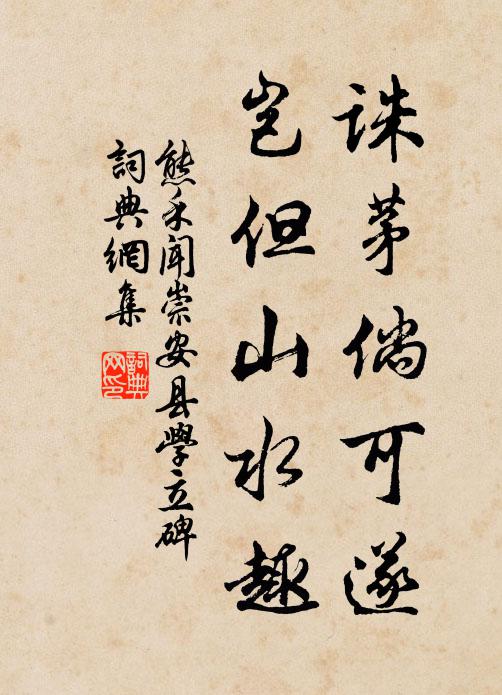 誅茅倘可遂
豈但山水趣
熊禾聞崇安县學立碑
詞典網集
詞典网印